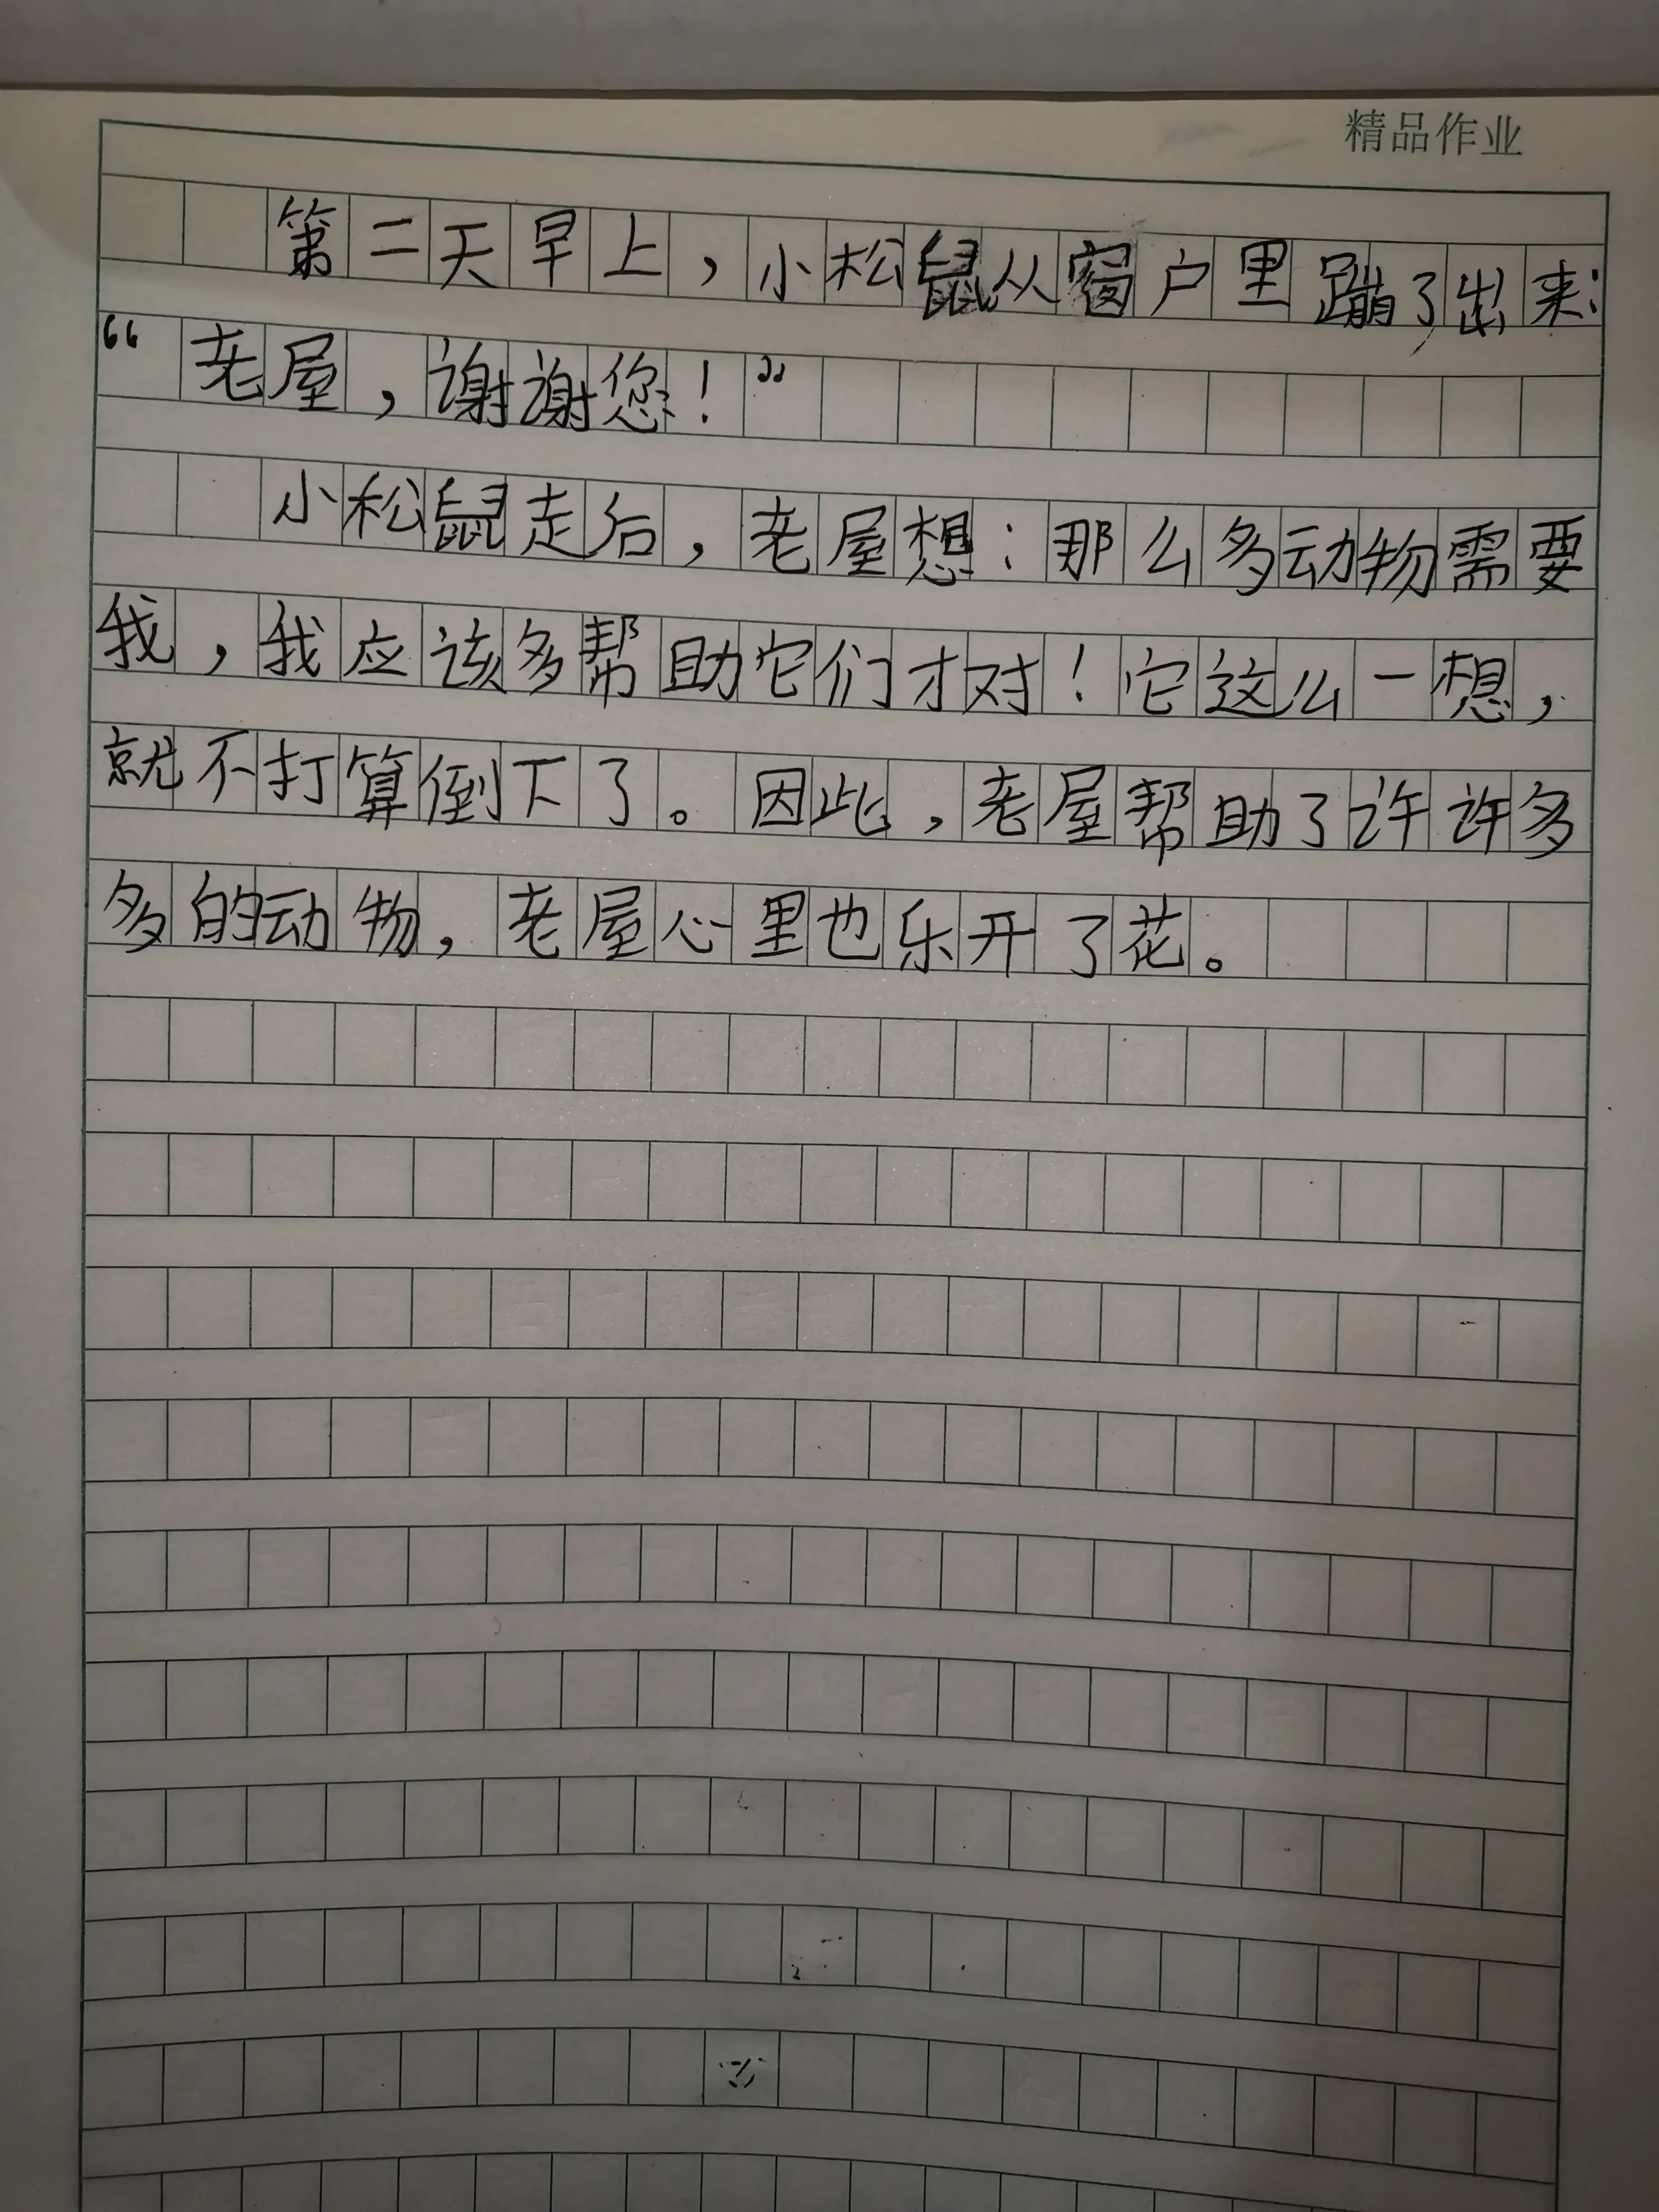 精品作业
第二天早上，小松鼠从窗户里蹦了出来：
“老屋，谢谢您！”
小松鼠走后，老屋想：那么多动物需要
我，我应该多帮助它们才对！它这么一想，
就不打算倒下了。因此，老屋帮助了许许多
多的动物，老屋心里也乐开了花。